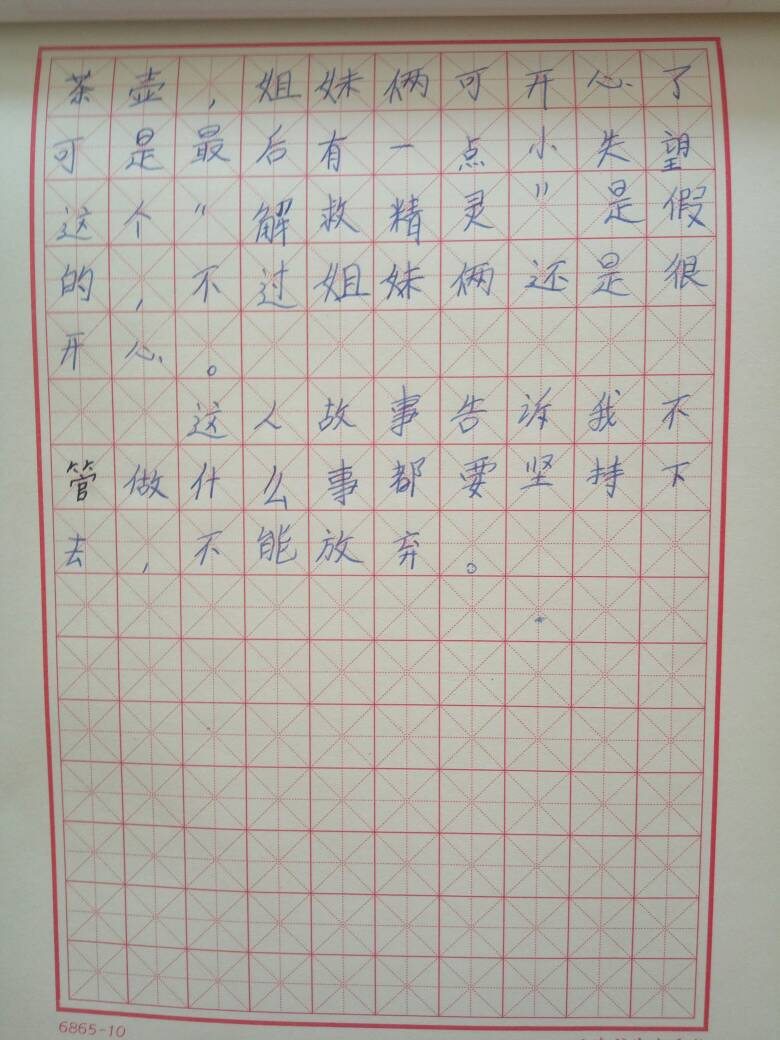 茶壶，姐妹俩可开心了
可是最后有一点小失望
这个“解救精灵”是假
的，不过姐妹俩还是很
开心。
这人故事告诉我不
管做什么事都要坚持下
去，不能放弃。
6865-10